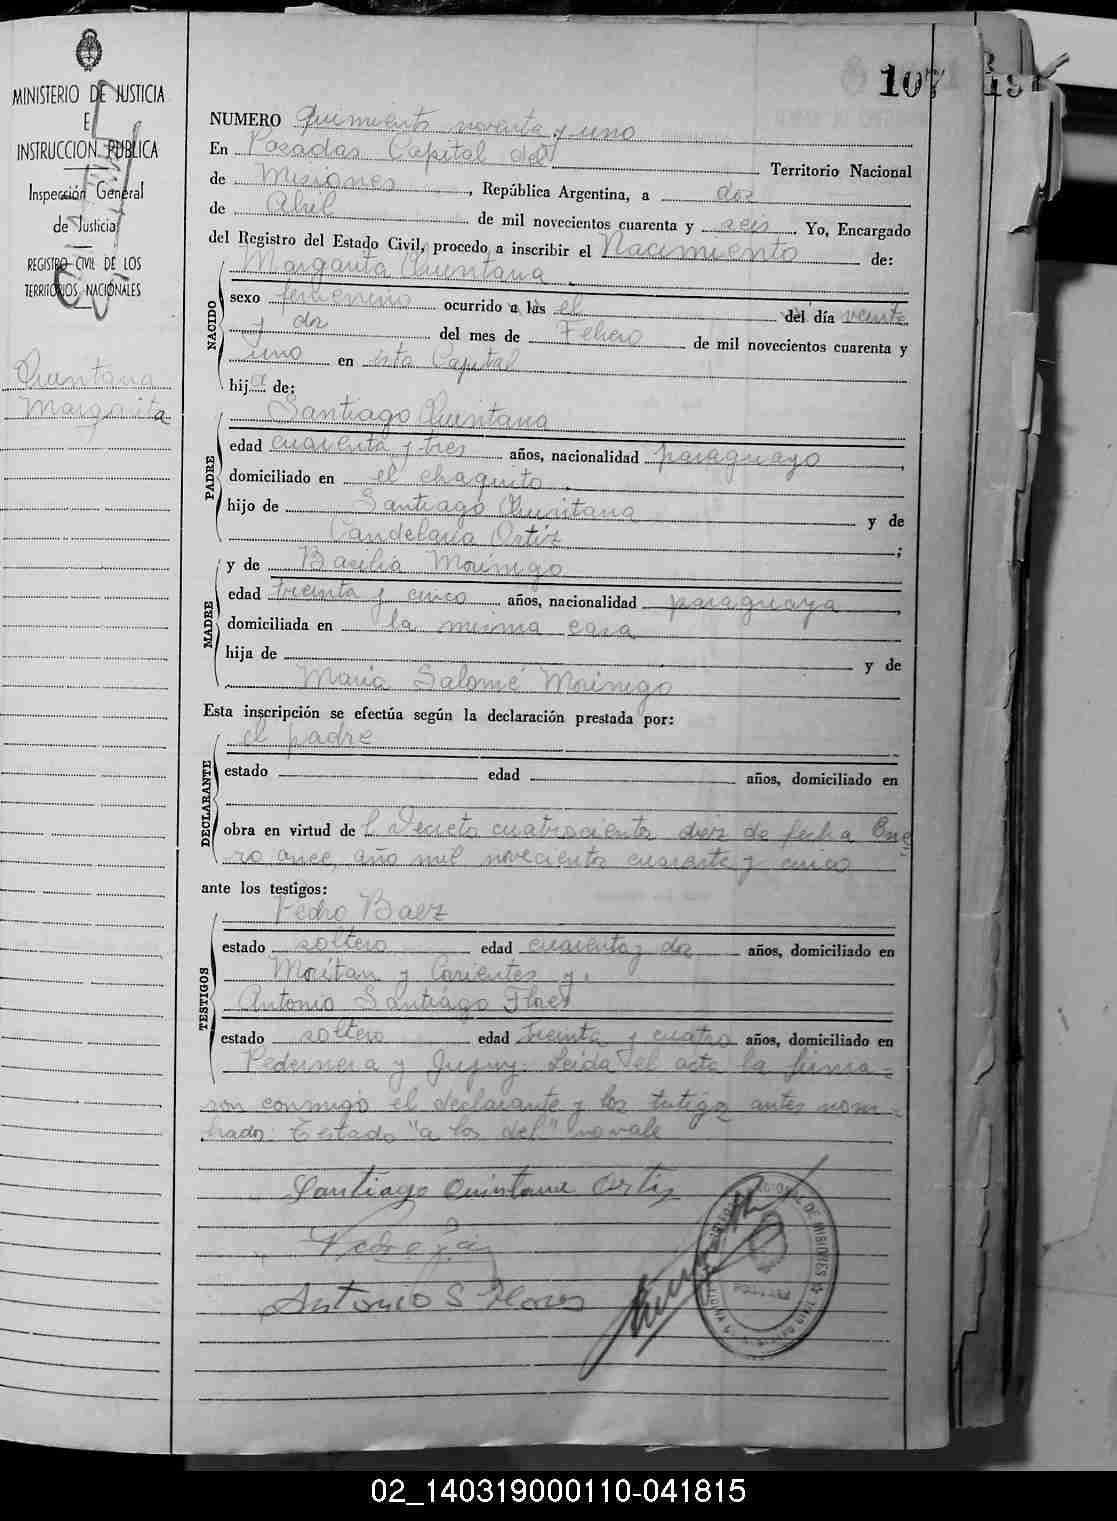 107
MINISTERIO DE JUSTICIA
E
INSTRUCCION PUBLICA
Inspección General
de Justicia
REGISTRO CIVIL DE LOS
TERRITORIOS NACIONALES
Quintana
Margarita
NUMERO Quinientos noventa y uno
En Posadas Capital del Territorio Nacional
de Misiones, República Argentina, a dos
de Abril de mil novecientos cuarenta y seis Yo, Encargado
del Registro del Estado Civil, procedo a inscribir el Nacimiento de:
Margarita Quintana
NACIDO
sexo femenino ocurrido a las el del día veinte
y dos del mes de Febrero de mil novecientos cuarenta y
uno en esta Capital
hija de:
Santiago Quintana
PADRE
edad cuarenta y tres años, nacionalidad paraguayo,
domiciliado en el chaquito.
hijo de Santiago Quintana y de
Candelaria Ortiz;
y de Basilia Morinigo
MADRE
edad treinta y cinco años, nacionalidad paraguaya,
domiciliada en la misma casa
hija de y de
Maria Salomé Morinigo
Esta inscripción se efectúa según la declaración prestada por:
el padre
DECLARANTE
estado edad años, domiciliado en
obra en virtud de l Decreto cuatrocientos diez de fecha Ene
ro once, año mil novecientos cuarenta y cinco
ante los testigos:
Pedro Baez
TESTIGOS
estado soltero edad cuarenta y dos años, domiciliado en
y Corrientes y.
Antonio Santiago Flores
estado soltero edad treinta y cuatro años, domiciliado en
Pedernera y Jujuy. Leida el acta la firma-
ron conmigo el declarante y los testigos antes nom-
brados: Testado "a las del" no vale
Santiago Quintana Ortiz
Antonio S Flores
DE MISIONES
POSADAS
02_140319000110-041815